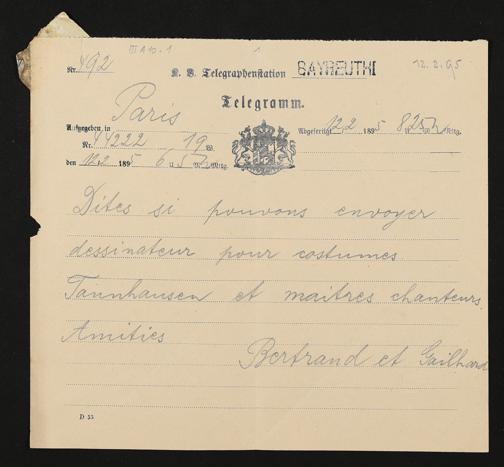 III A 10 - 1
1
Nr. 492 K. B. Telegraphenstation BAYREUTH 12.2.95
Telegramm.
Paris
Aufgegeben in
Abgefertigt 12.2 1895 8 U. 25 M. Mttg.
Nr. 44222 19 W.
den 12.2 1895 6 U. 5 M. Mttg.
Dites si pouvons envoyer
dessinateur pour costumes
Tannhausen et maitres chanteurs.
Amities
Bertrand et Gailhard
D 55